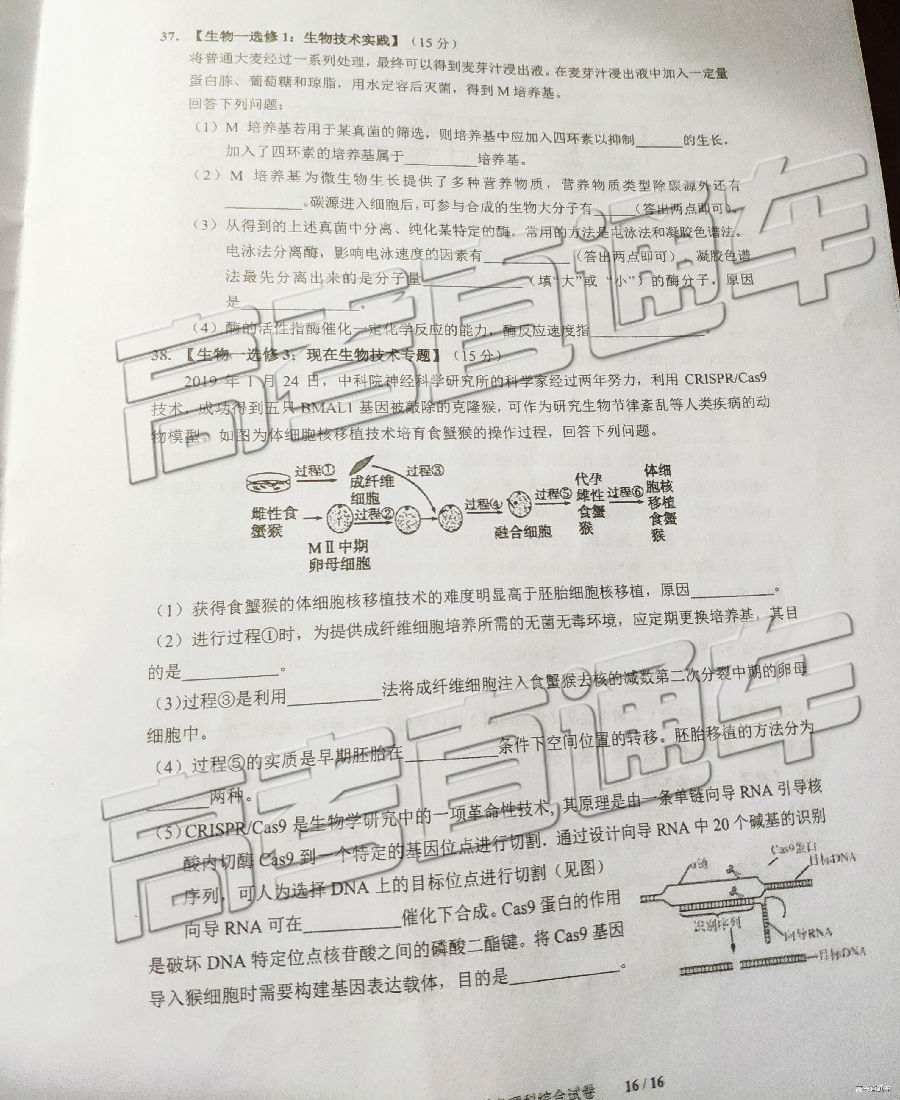 37. 【生物一选修1：生物技术实践】（15分）
将普通大麦经过一系列处理，最终可以得到麦芽汁浸出液。在麦芽汁浸出液中加入一定量
蛋白胨、葡萄糖和琼脂，用水定容后灭菌，得到M培养基。
回答下列问题：
（1）M 培养基若用于某真菌的筛选，则培养基中应加入四环素以抑制______的生长，
加入了四环素的培养基属于__________培养基。
（2）M 培养基为微生物生长提供了多种营养物质，营养物质类型除碳源外还有
__________。碳源进入细胞后，可参与合成的生物大分子有______(答出两点即可)。
（3）从得到的上述真菌中分离、纯化某特定的酶，常用的方法是电泳法和凝胶色谱法。
电泳法分离酶，影响电泳速度的因素有____________（答出两点即可）。凝胶色谱
法最先分离出来的是分子量______________（填“大”或“小”）的酶分子，原因
是________________。
（4）酶的活性指酶催化一定化学反应的能力，酶反应速度指________________。
38. 【生物一选修3：现在生物技术专题】（15分）
2019 年 1 月 24 日，中科院神经科学研究所的科学家经过两年努力，利用 CRISPR/Cas9
技术，成功得到五只 BMAL1 基因被敲除的克隆猴，可作为研究生物节律紊乱等人类疾病的动
物模型。如图为体细胞核移植技术培育食蟹猴的操作过程，回答下列问题。
过程① 成纤维细胞 过程③
雌性食蟹猴 过程② 过程④ 过程⑤ 代孕雌性食蟹猴 过程⑥ 体细胞核移植食蟹猴
MⅡ中期卵母细胞 融合细胞
（1）获得食蟹猴的体细胞核移植技术的难度明显高于胚胎细胞核移植，原因__________。
（2）进行过程①时，为提供成纤维细胞培养所需的无菌无毒环境，应定期更换培养基，其目
的是____________。
(3)过程③是利用____________法将成纤维细胞注入食蟹猴去核的减数第二次分裂中期的卵母
细胞中。
（4）过程⑤的实质是早期胚胎在____________条件下空间位置的转移。胚胎移植的方法分为
________两种。
(5) CRISPR/Cas9 是生物学研究中的一项革命性技术，其原理是由一条单链向导 RNA 引导核
酸内切酶 Cas9 到一个特定的基因位点进行切割．通过设计向导 RNA 中 20 个碱基的识别
序列，可人为选择 DNA 上的目标位点进行切割（见图）
向导 RNA 可在____________催化下合成。Cas9 蛋白的作用
是破坏 DNA 特定位点核苷酸之间的磷酸二酯键。将 Cas9 基因
导入猴细胞时需要构建基因表达载体，目的是______________。
α链 Cas9蛋白
目标DNA
向导RNA
目标DNA
科综合试卷 16 / 16
高考直通车
高考直通车